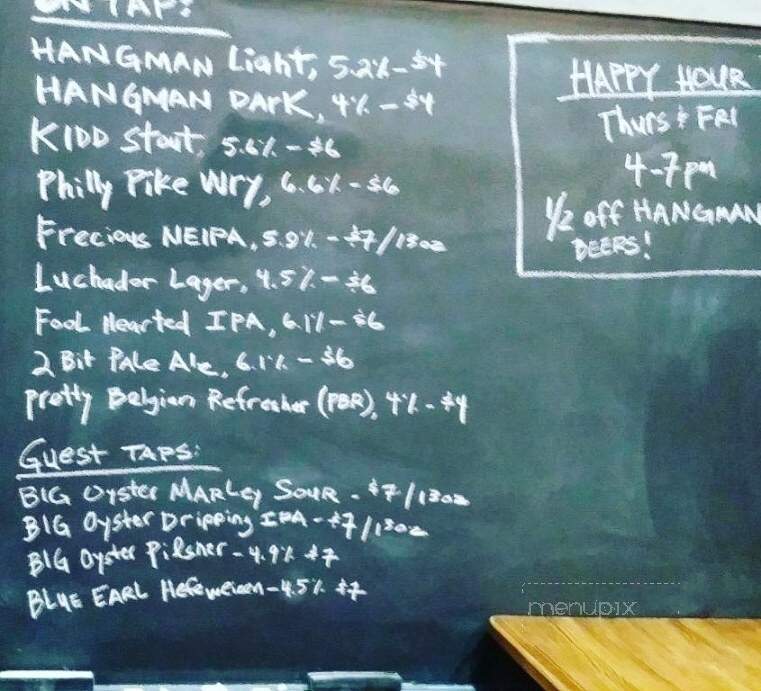 ON TAP:
HANGMAN Light, 5.2% - $4
HANGMAN DARK, 4% - $4
KIDD Stout, 5.6% - $6
Philly Pike Wry, 6.6% - $6
Frecious NEIPA, 5.9% - $7/13oz
Luchador Lager, 4.5% - $6
Fool Hearted IPA, 6.1% - $6
2 Bit Pale Ale, 6.1% - $6
Pretty Belgian Refresher (PBR), 4% - $4
Guest TAPS:
BIG Oyster MARLey Sour - $7/13oz
BIG Oyster Dripping IPA - $7/13oz
BIG Oyster Pilsner - 4.9% $7
BLUE EARL Hefeweizen - 4.5% $7
HAPPY HOUR
Thurs & FRI
4-7pm
1/2 off HANGMAN
BEERS!
menupix